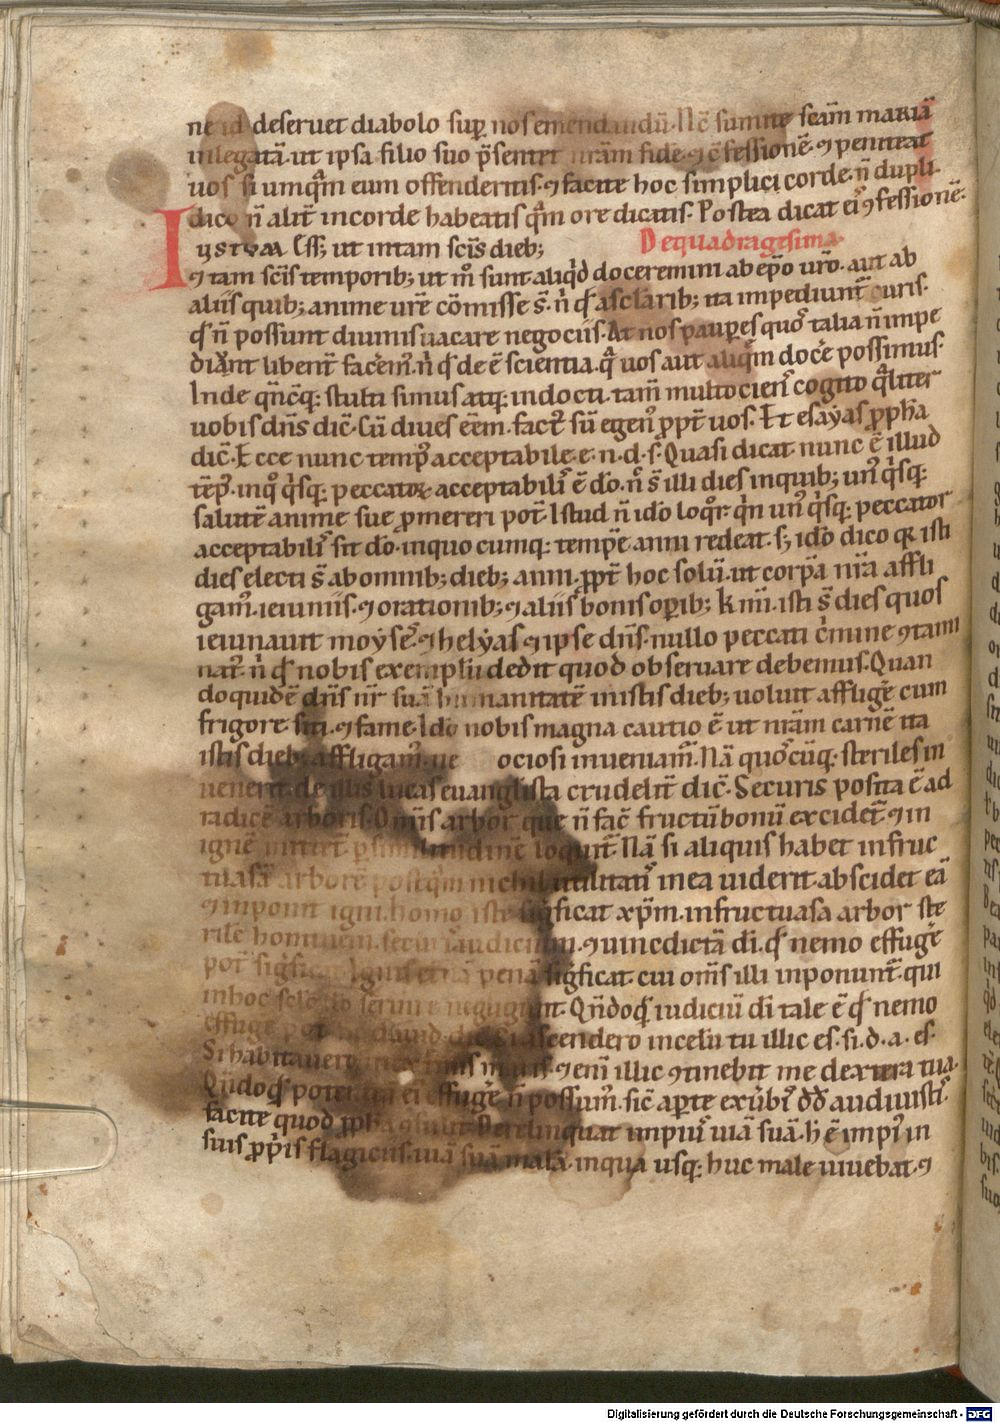 ne id deseruet diabolo sup̱ nos emendandū. Nc̄ sumite sc̄am mariā
in legatā. ut ipsa filio suo p̄sentet nr̄am fidē. ⁊ ꝯfessionē. ⁊ peniteat
uos si umqm̄ eum offenderitis. ⁊ facite hoc simplici corde. n̄ dupli
dico n̄ alit̄ in corde habeatis qm̄ ore dicitis. Postea dicat ei ꝯfessionē.
IUSTUM Ess; ut in tam sc̄is dieb;
De quadragesima.
⁊ tam sc̄is temporib; ut m̊ sunt aliqd̄ doceremini ab ep̄o uro. aut ab
aliis quib; anime ur̄e cōmisse s̄. n̄ q̄ asclarib; ita impediunt̄ curis.
q̄ n̄ possunt diuinis uacare negociis. At nos paup̱es quos talia n̄ impe
diant libent̄ facem̄. n̄ q̄ de ē scientia. q̄ uos aut aliqm̄ docē possimus.
Inde qn̄cq; stulti simus atq; indocti. tam̄ multociens cogito qlit̄er
uobis dn̄s dic̄. Cū diues eēm. fact̄ sū egen' ppt̄ uos. Et esaẏas ppha
dic̄. Ecce nunc temp' acceptabile. e. n. d. s. Quasi dicat nunc ē illud
tēp'. in quo qisq; peccator acceptabilis ē do. n̄ s̄ illi dies in quib; un' qisq;
salutē anime sue pmereri pot̄. Istud n̄ ido loqr qin un' qisq; peccator
acceptabilis sit do. in quocumq; tempe anni redeat. s; ido dico q isti
dies electi s̄ ab omnib; dieb; anni. ppt̄ hoc solū. ut corpa nr̄a affli
gam'. ieiuniis. ⁊ orationib; ⁊ aliis bonis opib; kmi. isti s̄ dies quos
ieiunauit moẏses. ⁊ helẏas ⁊ ipse dn̄s. nullo peccati cimine ꝯtami
nat'. n̄ q̄ nobis exemplū dedit quod obseruare debemus. Quan
do quidē dn̄s nr̄ suā humanitatē in istis dieb; uoluit affligē cum
frigore siti. ⁊ fame. Ido nobis magna cautio ē ut nr̄am carnē ita
istis dieb; affligam'. ne ociosi inueniam̄. Nā quocūq; steriles in
uenerit. de illis lucas euanglista crudelit̄ dic̄. Securis posita ē ad
radicē arboris. Omis arbor que n̄ fac̄ fructū bonū excidet̄ ⁊ in
ignē mittet̄ p similitudinē loquit̄. Nā si aliquis habet infruc
tuasā arborē postqm̄ nichil utilitatis in ea uiderit. abscidet eā
⁊ inponit igni. homo iste sigficat xpm̄. infructuasa arbor ste
rile hominem. securis iudicium. ⁊ uindictā di. q̄ nemo effugē
pot̄ sigficat. Ignis etnā penā sigficat. cui om̄s illi inponunt̄. qui
in hoc sclo n̄ ꝯfugiunt. Qn̄doq iudiciū di tale ē q̄ nemo
effugē pot ut dauid dic̄. Si ascendero in celū tu illic es. si. d. a. es.
Si habitauero in extremis maris. ⁊ enī illic ꝯtinebit me dextera tua.
Qn̄doq potentiā ei effugē n̄ possum'. sic̄ apte exubis dd audiuisti.
facite quod ppha ꝯsulit. Derelinquat impius uiā suā. h ē impi' in
suis ppiis flagiciis. uiā suā malā. in qua usq; huc male uiuebat. ⁊